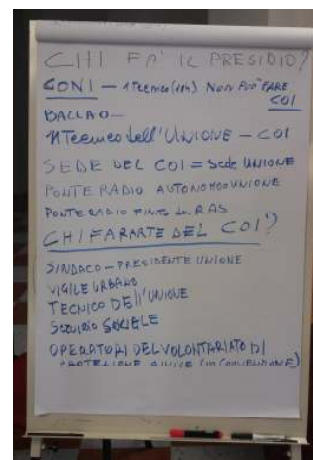 CHI FA' IL PRESIDIO?
GONI – 1 TECNICO (18h) NON PUO' FARE
COI
BALLAO –
1 Tecnico dell'UNIONE – COI
SEDE DEL COI = Sede UNIONE
PONTE RADIO AUTONOMO UNIONE
PONTE RADIO RAS
CHI FA PARTE DEL COI'?
SINDACO – PRESIDENTE UNIONE
VIGILE URBANO
TECNICO DELL'UNIONE
SERVIZIO SOCIALE
OPERATORI DEL VOLONTARIATO DI
PROTEZIONE CIVILE (in CONVENZIONE)